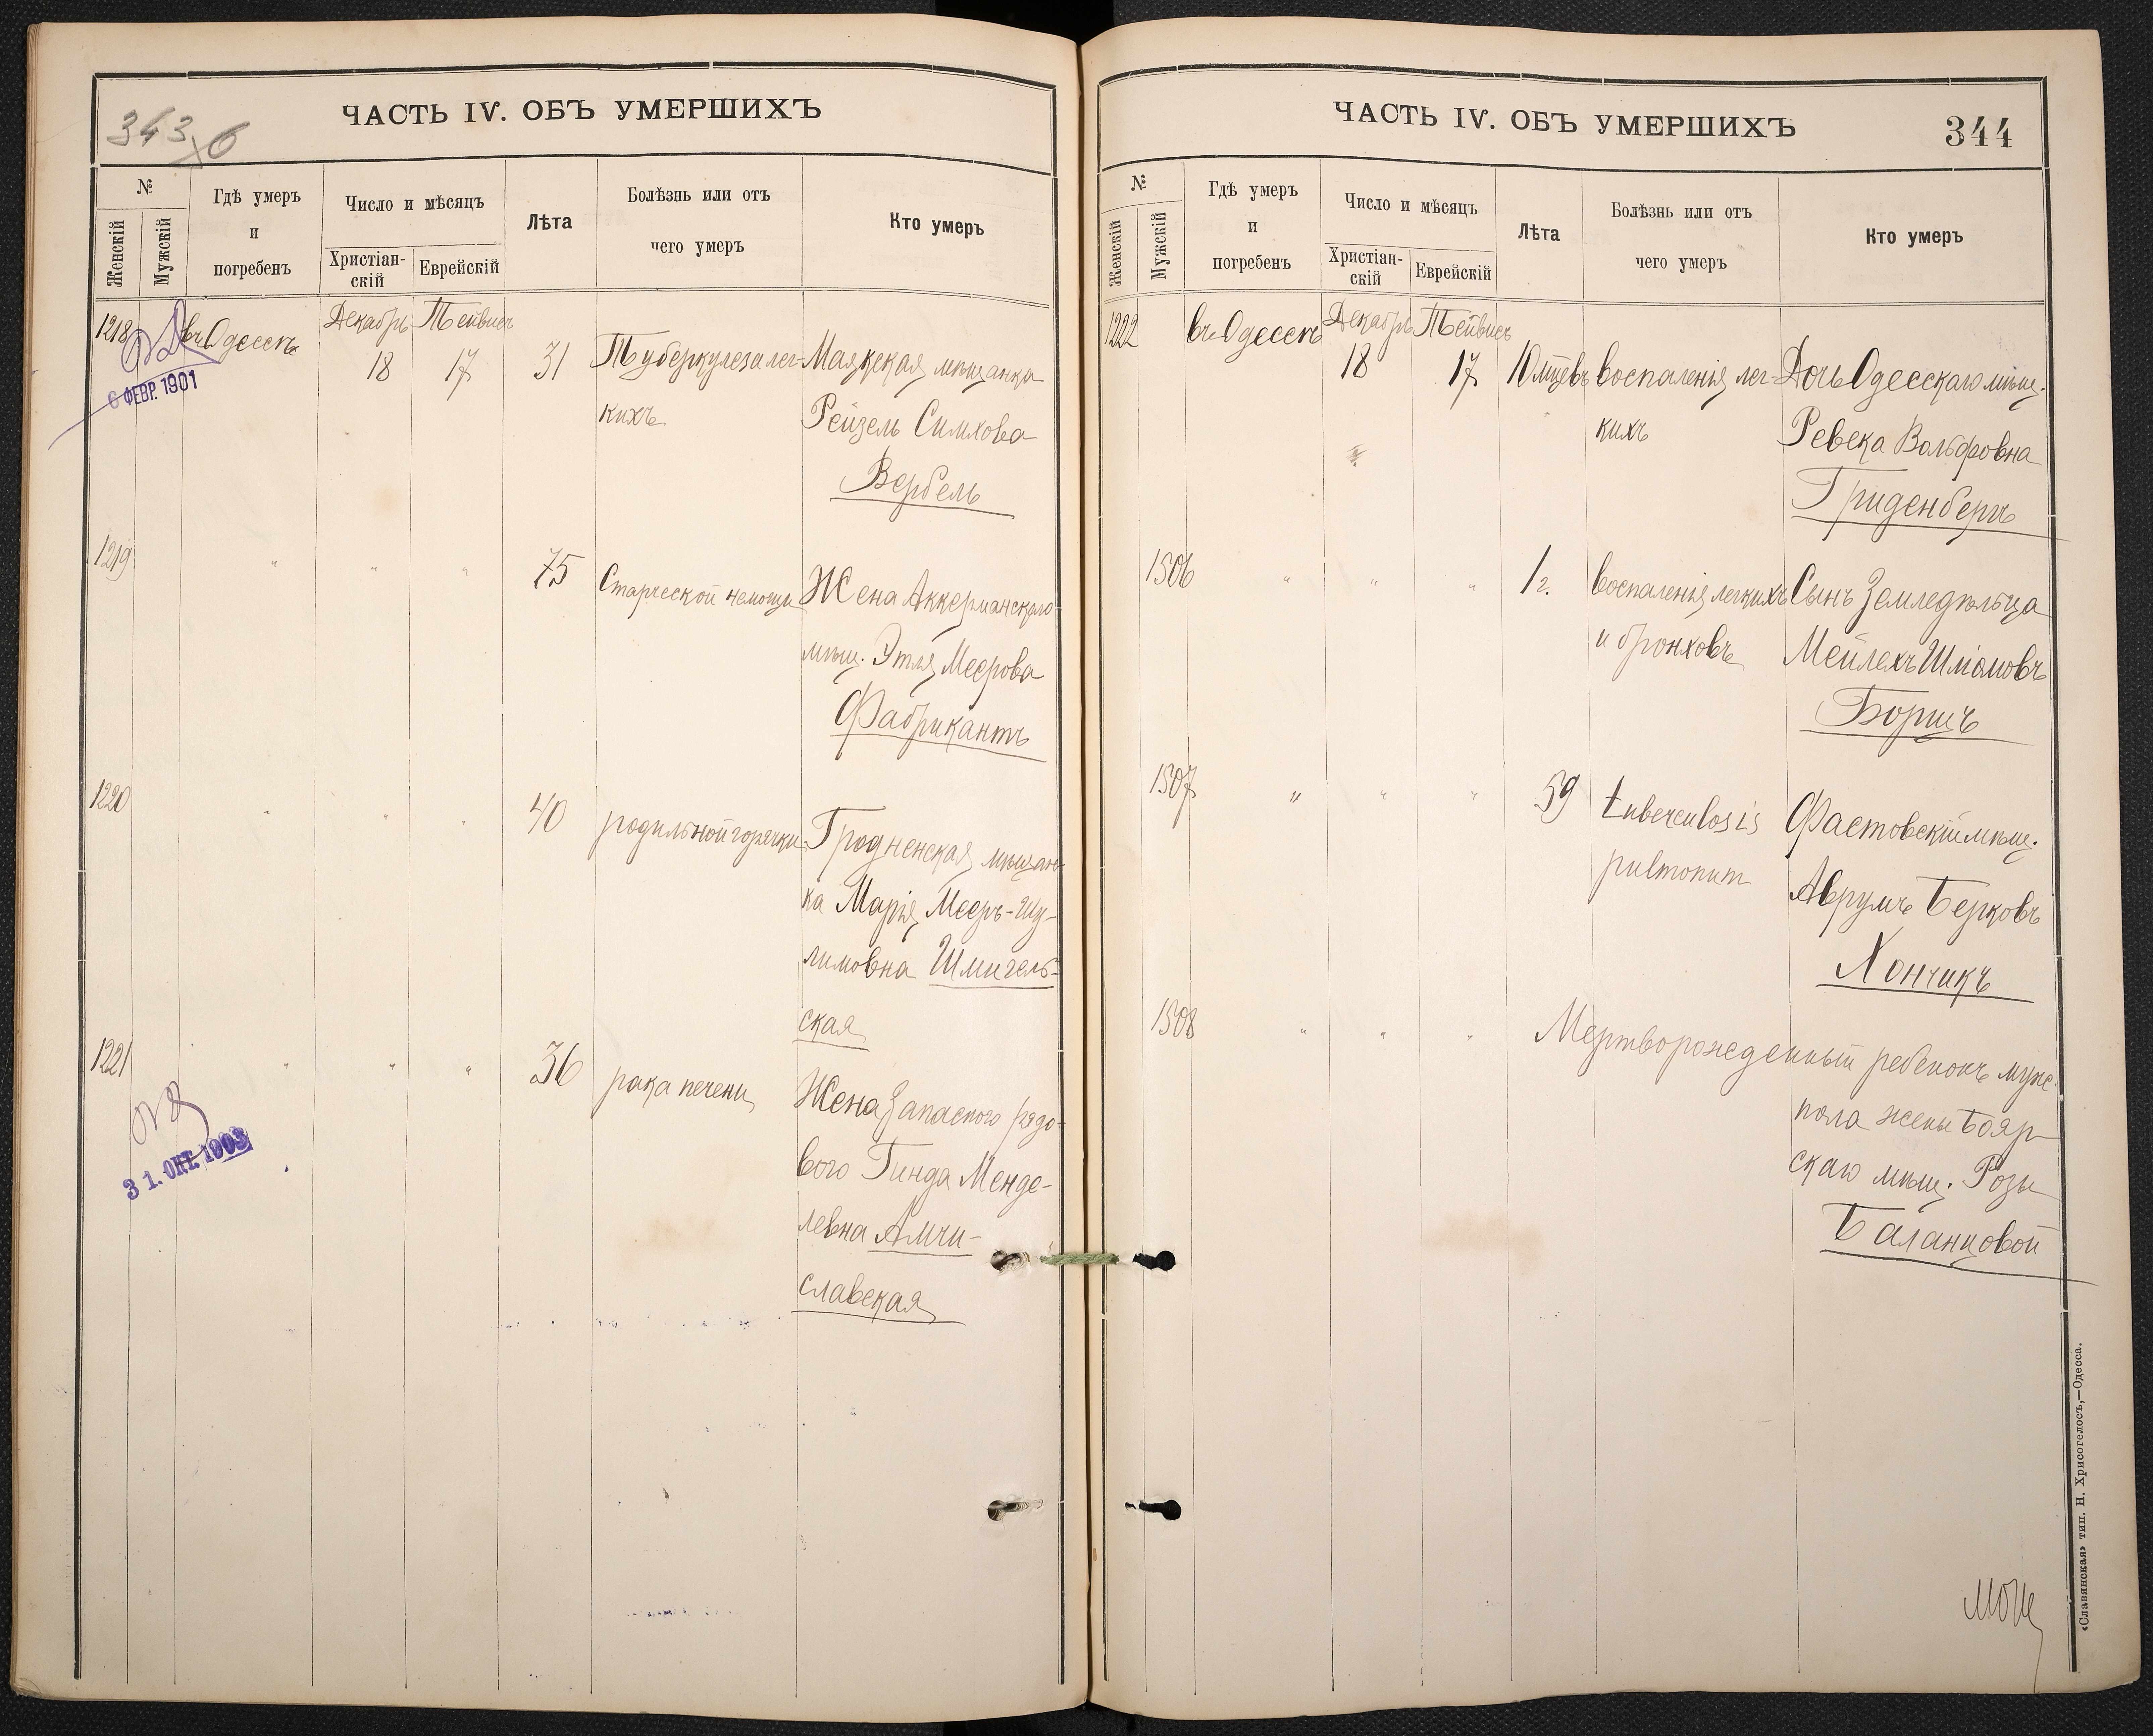 343 об
ЧАСТЬ IV. ОБЪ УМЕРШИХЪ
№
Женскій
Мужскій
Гдѣ умеръ
и
погребенъ
Число и мѣсяцъ
Христіан-
скій
Еврейскій
Лѣта
Болѣзнь или отъ
чего умеръ
Кто умеръ
1218
въ Одессѣ
Декабрь
18
Тейвисъ
17
31
Туберкулеза лег-
кихъ
Маякская мѣщанка
Рейзель Симхова
Вербель
6 ФЕВР. 1901
1219
" " "
75
Старческой немощи
Жена Аккерманскаго
мѣщ. Этля Меерова
Фабрикантъ
1220
" " "
40
родильной горячки
Гродненская мѣщан-
ка Марія Мееръ-Шу-
лимовна Шмигель-
ская
1221
" " "
36
рака печени
Жена запасного рядо-
вого Гинда Менде-
левна Амчи-
славская
31. ОКТ. 1903
ЧАСТЬ IV. ОБЪ УМЕРШИХЪ
344
№
Женскій
Мужскій
Гдѣ умеръ
и
погребенъ
Число и мѣсяцъ
Христіан-
скій
Еврейскій
Лѣта
Болѣзнь или отъ
чего умеръ
Кто умеръ
1222
въ Одессѣ
Декабрь
18
Тейвисъ
17
10 мцевъ
Воспаленія лег-
кихъ
Дочь Одесскаго мѣщ.
Ревека Вольфовна
Гриденбергъ
1506
" " "
1 г.
Воспаленія легкихъ
и бронховъ
Сынъ Земледѣльца
Мейлехъ Шліомовъ
Борщъ
1507
" " "
59
tuberculosis
Фастовскій мѣщ.
Аврумъ Берковъ
Хончикъ
1508
" " "
Мертворожденный ребенокъ муж.
пола жены Бояр-
скаго мѣщ. Розы
Баланцовой
«Славянская» тип. Н. Хрисогелосъ,—Одесса.